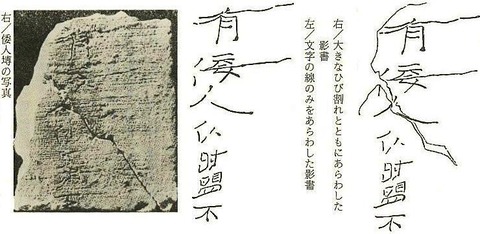 有倭人以时盟不
右／大きなひび割れとともにあらわした
影書
左／文字の線のみをあらわした影書
有倭人以时盟不
右／倭人塼の写真